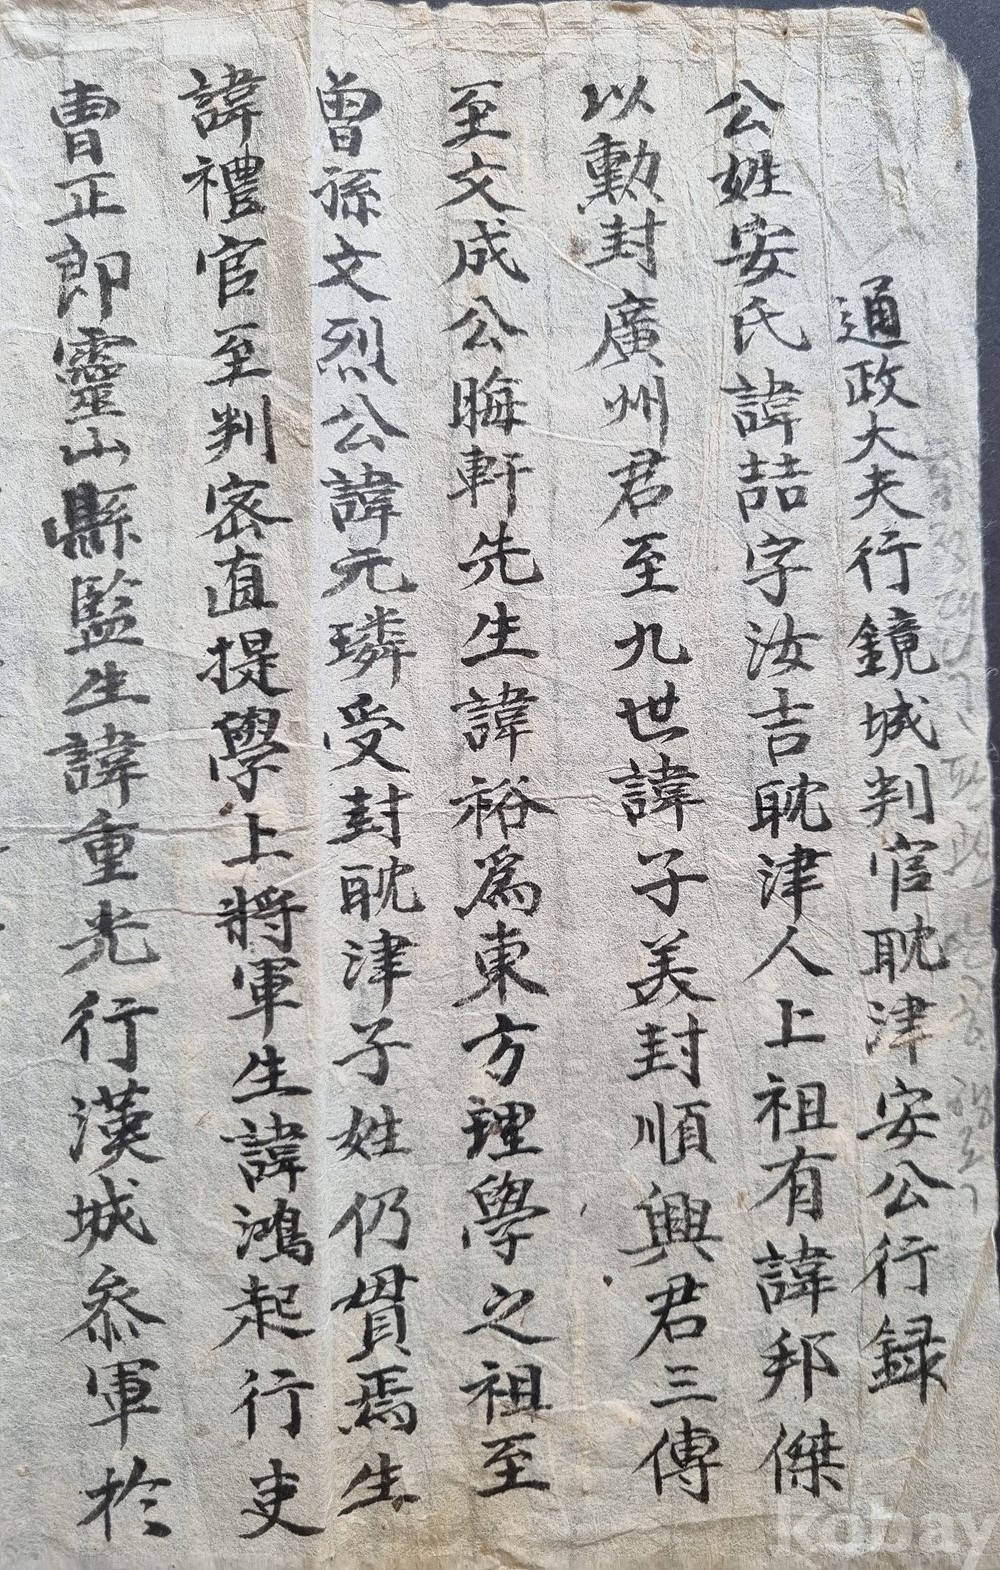 通政大夫行鏡城判官耽津安公行録
公姓安氏諱喆字汝吉耽津人上祖有諱邦傑
以勳封廣州君至九世諱子美封順興君三傳
至文成公晦軒先生諱裕爲東方理學之祖至
曽孫文烈公諱元璘受封耽津子姓仍貫焉生
諱禮官至判密直提學上將軍生諱鴻起行吏
曺正郎靈山縣監生諱重光行漢城叅軍於
kobay